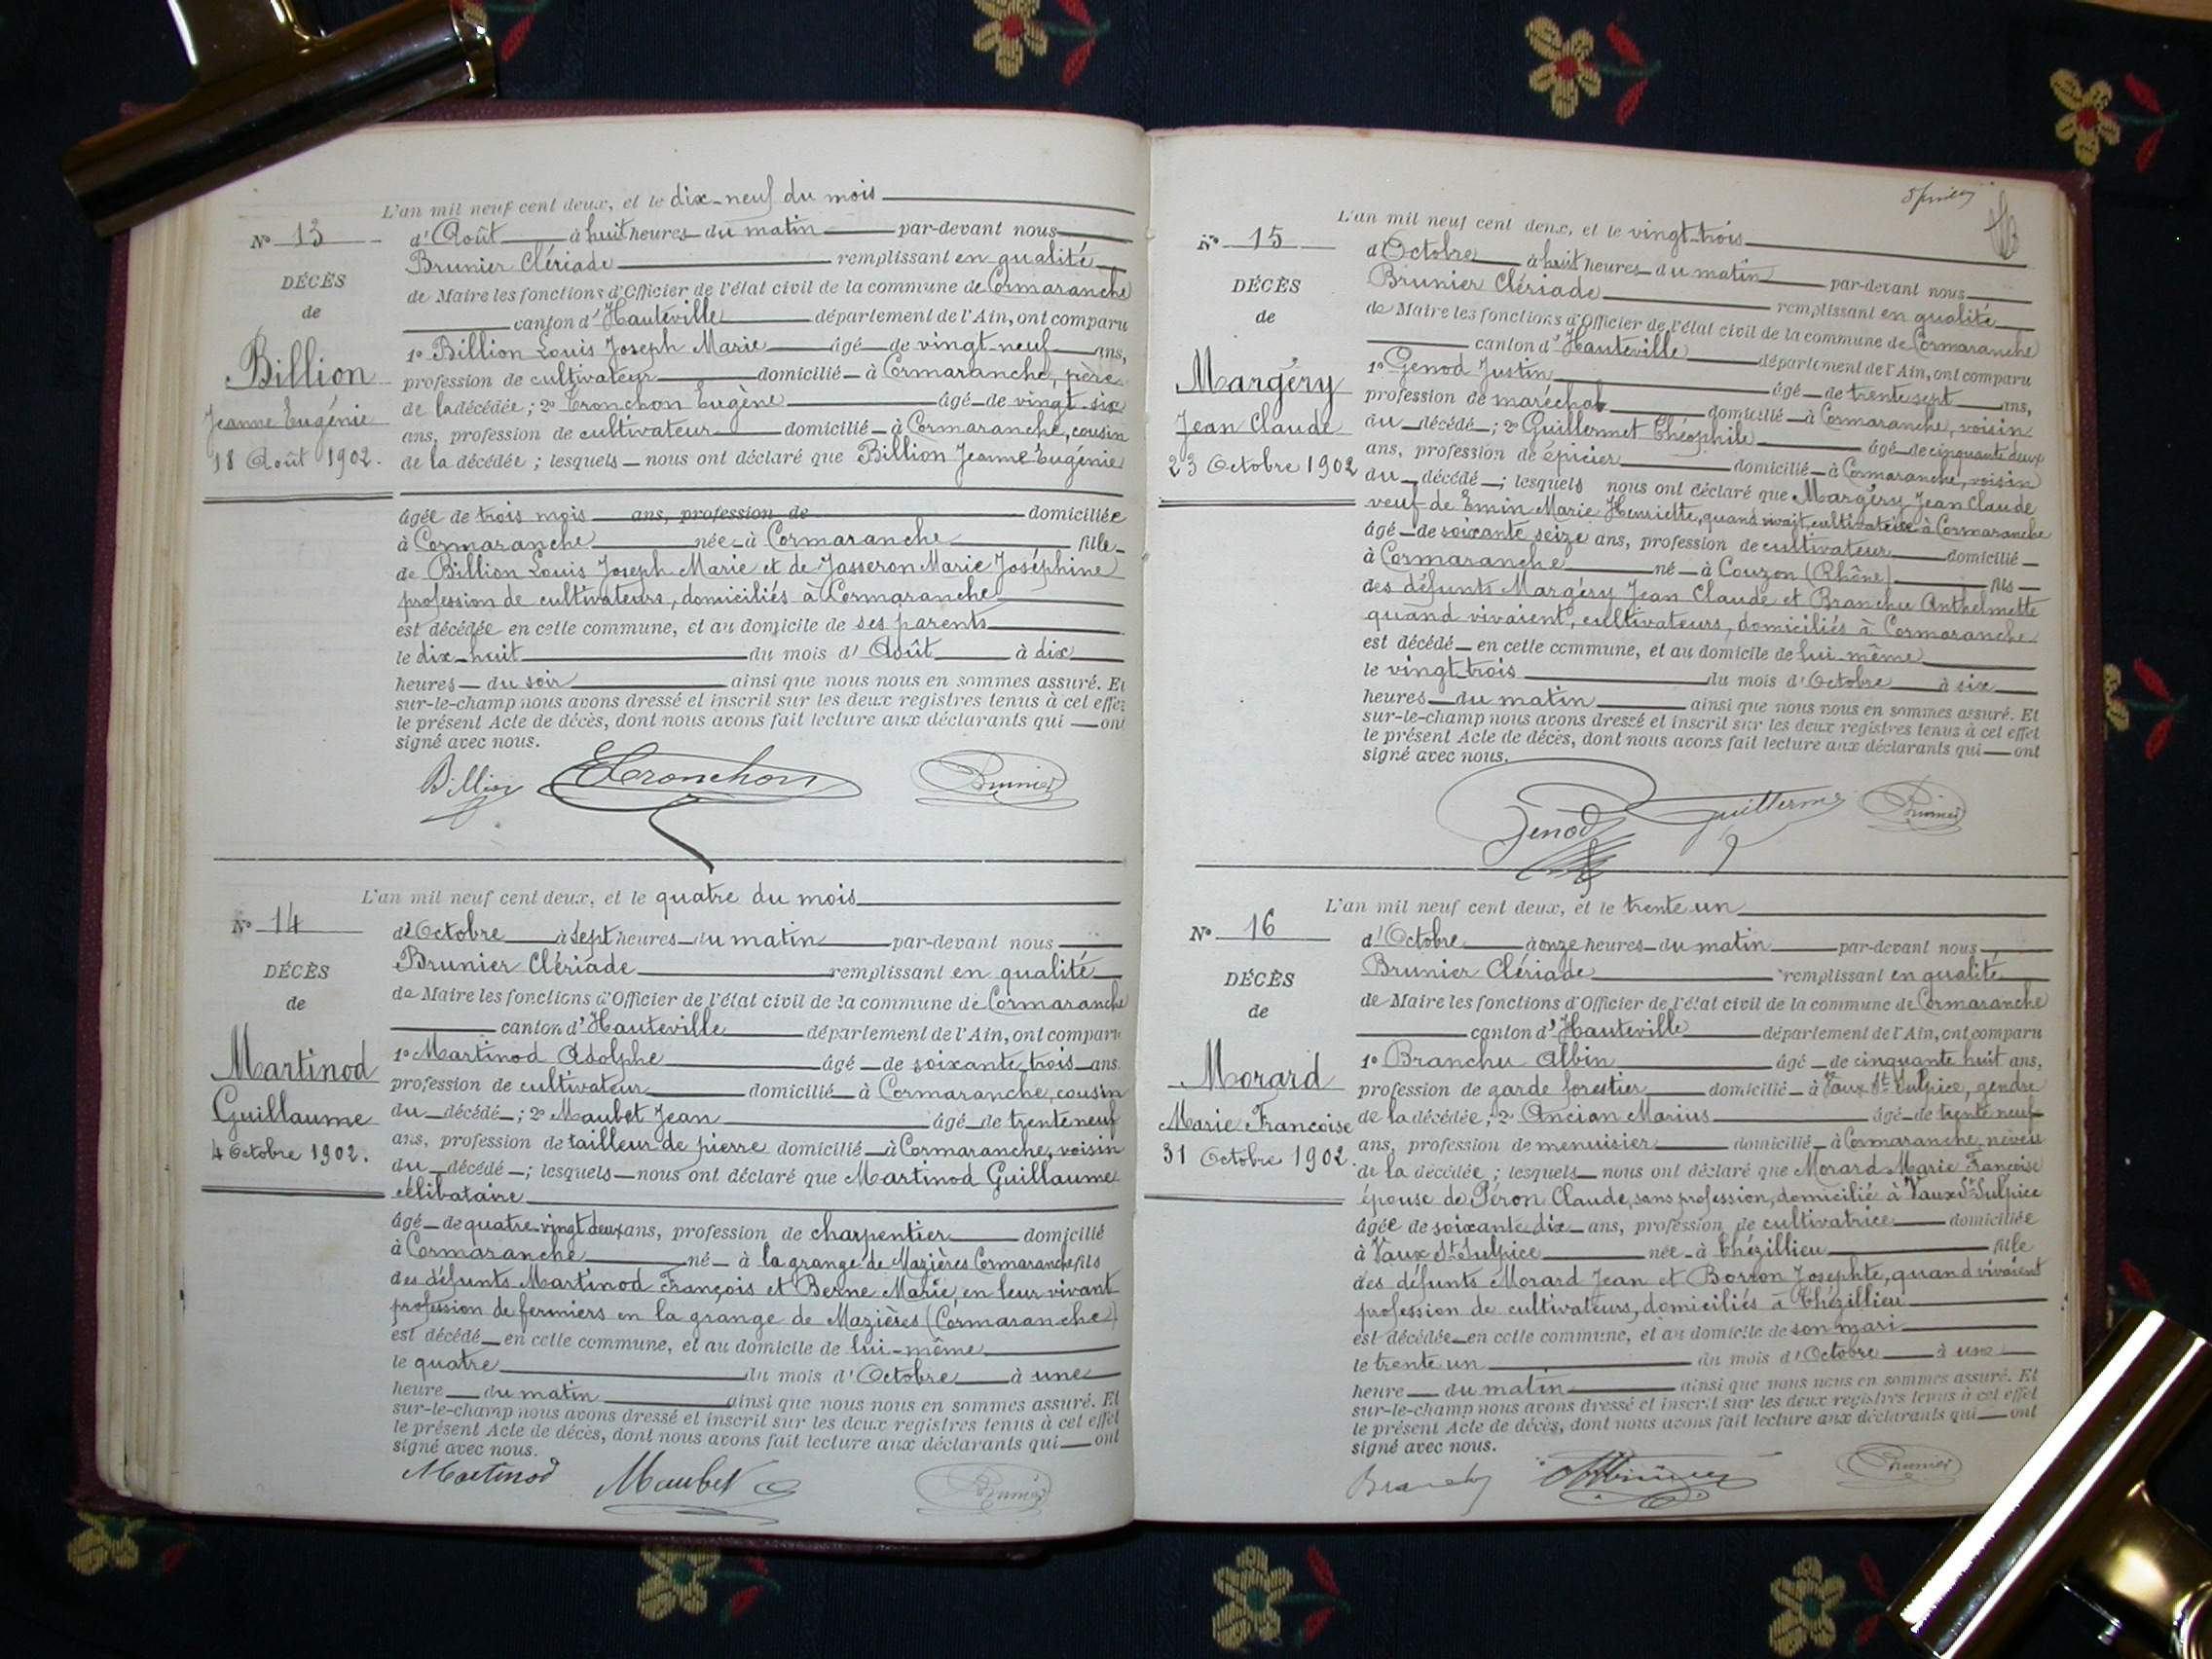 L'an mil neuf cent deux, et le dix-neuf du mois
N° 13
d'Août à huit heures du matin par-devant nous
Brunier Clériade remplissant en qualité
DÉCÈS
de Maire les fonctions d'Officier de l'état civil de la commune de Cormaranche
de
canton d'Hauteville département de l'Ain, ont comparu
1° Billion Louis Joseph Marie âgé de vingt-neuf ans,
Billion
profession de cultivateur domicilié à Cormaranche, père
de la décédée; 2° Tronchon Eugène âgé de vingt-six
Jeanne Eugénie
ans, profession de cultivateur domicilié à Cormaranche, cousin
18 Août 1902.
de la décédée; lesquels nous ont déclaré que Billion Jeanne Eugénie
âgée de trois mois ans, profession de domiciliée
à Cormaranche née à Cormaranche fille
de Billion Louis Joseph Marie et de Jasseron Marie Joséphine
profession de cultivateurs, domiciliés à Cormaranche
est décédée en cette commune, et au domicile de ses parents
le dix-huit du mois d'Août à dix
heures du soir ainsi que nous nous en sommes assuré. Et
sur-le-champ nous avons dressé et inscrit sur les deux registres tenus à cet effet
le présent Acte de décès, dont nous avons fait lecture aux déclarants qui ont
signé avec nous.
Billion Tronchon Brunier
L'an mil neuf cent deux, et le quatre du mois
N° 14
d'Octobre à sept heures du matin par-devant nous
Brunier Clériade remplissant en qualité
DÉCÈS
de Maire les fonctions d'Officier de l'état civil de la commune de Cormaranche
de
canton d'Hauteville département de l'Ain, ont comparu
1° Martinod Adolphe âgé de soixante-trois ans
Martinod
profession de cultivateur domicilié à Cormaranche, cousin
du décédé; 2° Maubet Jean âgé de trente neuf
Guillaume
ans, profession de tailleur de pierre domicilié à Cormaranche, voisin
4 Octobre 1902.
du décédé; lesquels nous ont déclaré que Martinod Guillaume
célibataire
âgé de quatre-vingt deux ans, profession de charpentier domicilié
à Cormaranche né à la grange de Mazières Cormaranche fils
des défunts Martinod François et Berne Marie, en leur vivant
profession de fermiers en la grange de Mazières (Cormaranche)
est décédé en cette commune, et au domicile de lui-même
le quatre du mois d'Octobre à une
heure du matin ainsi que nous nous en sommes assuré. Et
sur-le-champ nous avons dressé et inscrit sur les deux registres tenus à cet effet
le présent Acte de décès, dont nous avons fait lecture aux déclarants qui ont
signé avec nous.
Martinod Maubet Brunier
L'an mil neuf cent deux, et le vingt-trois
N° 15
d'Octobre à huit heures du matin par-devant nous
Brunier Clériade remplissant en qualité
DÉCÈS
de Maire les fonctions d'Officier de l'état civil de la commune de Cormaranche
de
canton d'Hauteville département de l'Ain, ont comparu
1° Genod Justin âgé de trente sept ans,
Margéry
profession de maréchal domicilié à Cormaranche, voisin
Jean Claude
du décédé; 2° Guillermet Théophile âgé de cinquante deux
ans, profession de épicier domicilié à Cormaranche, voisin
23 Octobre 1902
du décédé; lesquels nous ont déclaré que Margéry Jean Claude
veuf de Emin Marie Henriette, quand vivait, cultivatrice à Cormaranche
âgé de soixante seize ans, profession de cultivateur domicilié
à Cormaranche né à Couzon (Rhône) fils
des défunts Margéry Jean Claude et Branchu Anthelmette
quand vivaient, cultivateurs, domiciliés à Cormaranche
est décédé en cette commune, et au domicile de lui-même
le vingt-trois du mois d'Octobre à six
heures du matin ainsi que nous nous en sommes assuré. Et
sur-le-champ nous avons dressé et inscrit sur les deux registres tenus à cet effet
le présent Acte de décès, dont nous avons fait lecture aux déclarants qui ont
signé avec nous.
Genod Guillermet Brunier
L'an mil neuf cent deux, et le trente un
N° 16
d'Octobre à onze heures du matin par-devant nous
Brunier Clériade remplissant en qualité
DÉCÈS
de Maire les fonctions d'Officier de l'état civil de la commune de Cormaranche
de
canton d'Hauteville département de l'Ain, ont comparu
1° Branchu Albin âgé de cinquante huit ans,
Morard
profession de garde forestier domicilié à Vaux St Sulpice, gendre
Marie Françoise
de la décédée; 2° Ancian Marius âgé de trente neuf
ans, profession de menuisier domicilié à Cormaranche, neveu
31 Octobre 1902.
de la décédée; lesquels nous ont déclaré que Morard Marie Françoise
épouse de Péron Claude, sans profession, domicilié à Vaux St Sulpice
âgée de soixante dix ans, profession de cultivatrice domiciliée
à Vaux St Sulpice née à Thézillieu fille
des défunts Morard Jean et Borron Josephte, quand vivaient
profession de cultivateurs, domiciliés à Thézillieu
est décédée en cette commune, et au domicile de son mari
le trente un du mois d'Octobre à une
heure du matin ainsi que nous nous en sommes assuré. Et
sur-le-champ nous avons dressé et inscrit sur les deux registres tenus à cet effet
le présent Acte de décès, dont nous avons fait lecture aux déclarants qui ont
signé avec nous.
Branchu Brunier